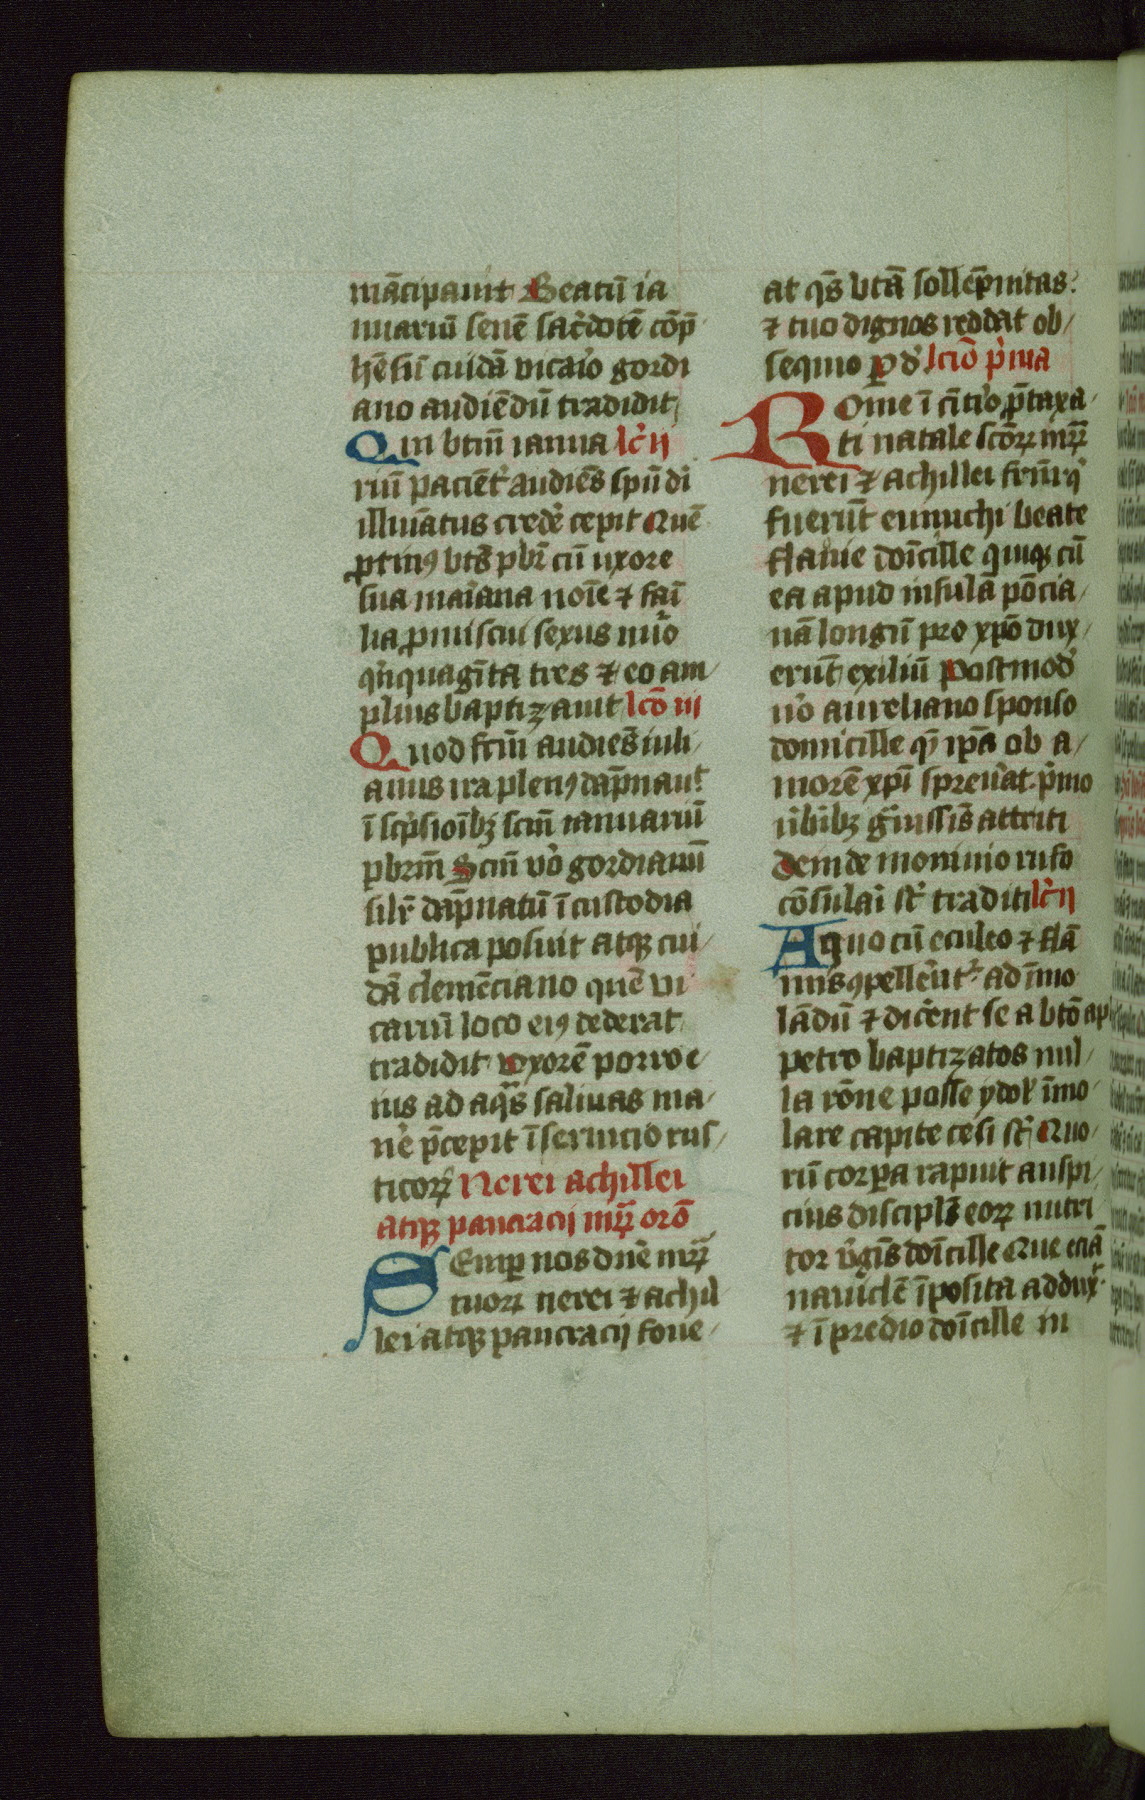 mācipauit Beatū ia
nuariū senē sac̓dotē cōp̄
hēsū cuidā vicaīo gordi
ano audiēdū tradidit
Qui btm̄ ianua lc̓ ij
riū pacient̓ audiēs spū di
illuīatus cred̓e cepit Quē
ꝓtinꝰ bts̄ pbr̄ cū uxore
sua maīana noīe ⁊ faī
lia ꝓmiscui sexus nūo
qn̓quagīta tres ⁊ eo am
plius baptizauit lcō iij
Quod frm̄ audiēs iuli
anus ira plenꝰ dāpnauit
ī scp̓sioībꝫ scm̄ ianuariū
pbrm̄ Scm̄ vo̓ gordianū
silr̄ dāpnatū ī custodia
publica posuit atqꝫ cui
dā clemēciano quē vi
cariū loco eiꝰ dederat
tradidit vxorē porro e
ius ad aqas̄ saluias ma
ne̓ p̄cepit ī seruicio rus
ticoꝝ Nerei achillei
atqꝫ pancracij mr̄ꝝ orō
SEmꝑ nos dn̄e mr̄ꝝ
tuoꝝ nerei ⁊ achil
lei atqꝫ pancracij foue
at qs̄ btā sollēpnitas
⁊ tuo dignos reddat ob
sequio ꝑ d̓ lcīo p̓ma
Rome ī cīit̓o p̄taxa
ti natale scōꝝ mr̄ꝝ
nerei ⁊ achillei frm̄ qi
fuerūt eunuchi beate
flauie doīcille quiqꝫ cū
ea apud insulā pōcia
nā longū pro xpō dux
erūt exiliū Postmod̓
uo̓ aureliano sponso
domicille qͥ ipā ob a
morē xpī spreu̓at p̓mo
u̓bibꝫ gͣuissīs attriti
deinde monimio rufo
cōsulaī st̄ traditi lc̓ ij
A quo cū eculeo ⁊ flā
mis ꝯpelle̓ntᷣ ad īmo
lādū ⁊ dice̓nt se a btō apl
petro baptizatos nul
la rōne posse ydol̓ īmo
lare capite cesi st̄ Quo
rū corꝑa rapuit auspi
cius discipl̓s eoꝝ nutri
tor v̓gīs doīcille Que eciā
nauiclē īposita addux̓
⁊ ī predio doīcille in